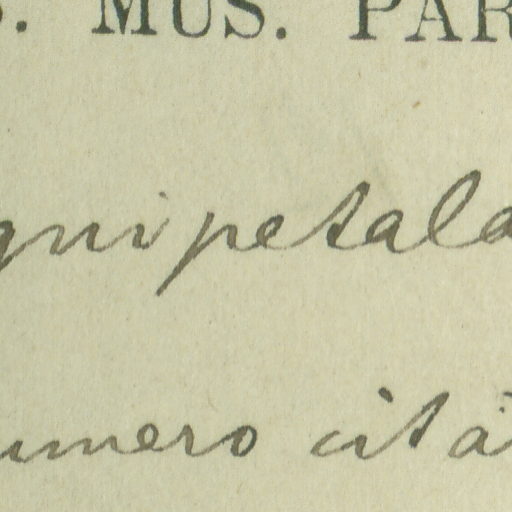 S. MUS. PAR
quipetala
numero cità